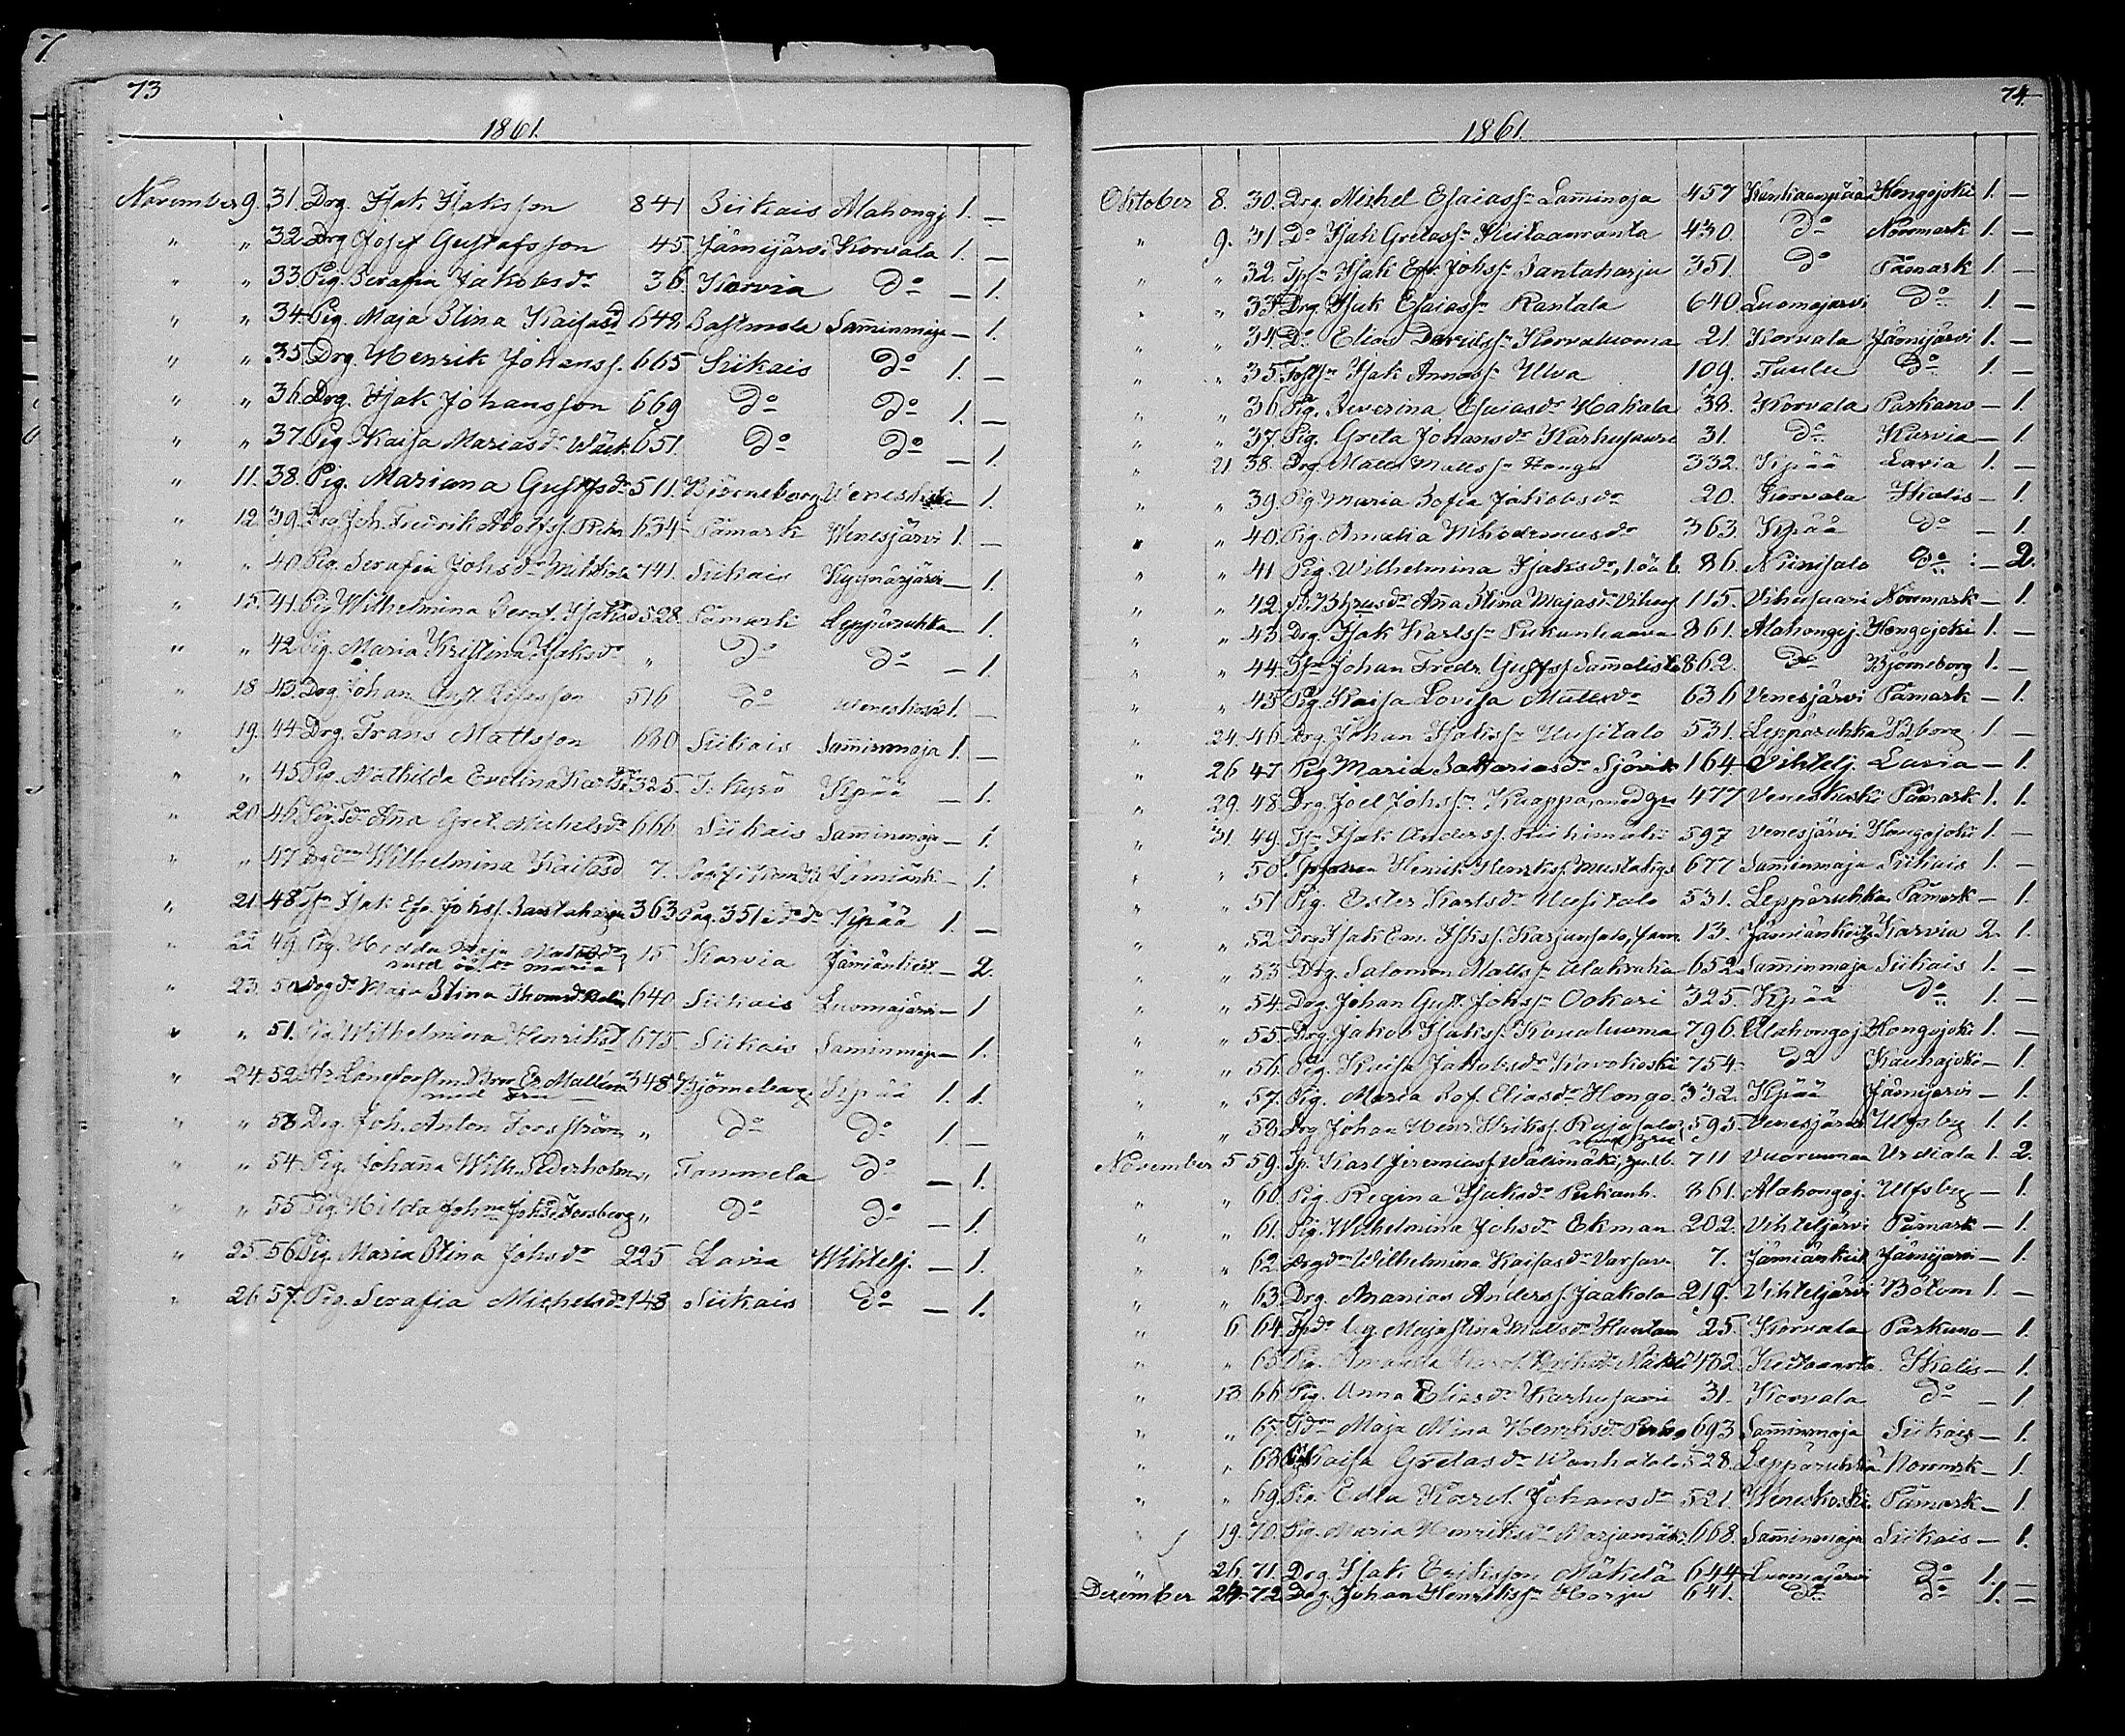 7.
73
1861.
November 9. 31. Drg. Isak Isaksson 841 Siikais Alahongj. 1. —
" " 32. Drg Josef Gustafsson 45. Jämijärvi Korvala 1. —
" " 33. Pig. Serafia Jakobsdr 36. Karvia Do — 1.
" " 34. Pig. Maja Stina Kaisasd 642 Sastmola Sam̄inmaja — 1.
" " 35. Drg. Henrik Johanss. 665 Siikais Do 1. —
" " 36. Drg. Isak Johansson 669 Do Do 1. —
" " 37. Pig Kaisa Mariasdr 651. Do Do — 1.
" 11. 38. Pig. Mariana Gustfsdr 511. Björneborg Veneskoski — 1.
" 12. 39. Drg. Joh. Fredrik Adolfss. 634 Påmark Venesjärvi 1. —
" " 40. Pig. Serafia Johsdr 741. Siikais Kyynärjärvi — 1.
" 15. 41. Pig Wilhelmina Bernt. Isaksd 528. Påmark Leppäruhka — 1.
" " 42 Pig. Maria Kristina Isaksdr " Do Do — 1.
" 18 43. Drg. Johan Gust. 516 Do Veneskoski 1. —
" 19. 44. Drg. Frans Mattsson 680 Siikais Sam̄inmaja 1. —
" " 45 Pig. Mathilda Evelina Karlsd 325. T. Kyrö Kpää — 1.
" 20 46. Pig. Idr Añna Gret. Michelsdr 666 Siikais Sam̄inmaja — 1.
" " 47 Drgdr Wilhelmina Kaisasd 7. Pag 7 Jämiänk. — 1.
" 21. 48. Isak Esa. Johss. Santaharju 363 Pag. 351 Kpää 1. —
" 22 49. Pig. Hedda Maja Mattsdr
med Maria 15 Karvia Jämiänkeid. — 2.
" 23. 50. Drgdr Maja Stina Thomsd. 640 Siikais Luomajärvi — 1
" " 51. Pig. Wilhelmina Henriksd 675 Siikais Saminmaja — 1.
" 24. 52. Hr Länsforstm. 348 Björneborg Kpää 1. 1.
med Fru
" " 53 Drg. Joh. Anton Forsström " Do Do 1 —
" " 54 Pig. Johaña Wilh. Sederholm " Tammela Do — 1.
" " 55 Pig. Hilda Johna Johsd. Forsberg " Do Do — 1.
" 25. 56. Pig. Maria Stina Johsdr 225 Lavia Wihtelj. — 1.
" 26 57. Pig. Serafia Michelsdr 148 Siikais Do — 1.
74.
1861.
Oktober 8. 30. Drg. Mickel Esaiass. Lam̄inoja 457 Kankaanpää Hongojoki 1. —
" 9. 31. Do Isak Gretass. Keitaanranta 430. Do Norrmark 1. —
" " 32. Isak Esa. Johss. Santaharju 351. Do Påmark 1. —
" " 33 Drg. Isak Esaiass. Rantala 640. Luomajarvi Do 1. —
" " 34. Do Elias Davidss. Korvaluoma 21. Korvala Jämijärvi 1. —
" " 35. Isak Annass. Ulva 109. Taulu Do 1. —
" " 36 Pig. Severina Esaiasdr Hakala 38. Korvala Parkano — 1.
" " 37. Pig. Greta Johansdr Karhusaari 31. Do Karvia — 1.
" 21. 38. Drg. Matts Mattss. Hongo 332. Kpää Lavia 1. —
" " 39. Pig. Maria Sofia Jakobsdr 20. Korvala Ikalis — 1.
" " 40. Pig. Amalia Nikodemusdr 363. Kpää Do — 1.
" " 41. Pig. Wilhelmina Isaksdr, 1. oä b. 86. Niinisalo Do — 2.
" " 42. Añna Stina Majasdr 115. Vihusaari Norrmark — 1.
" " 43. Drg. Isak Karlss. Pukanhaava 861. Alahongoj. Hongojoki 1. —
" " 44. Johan Fredr. Gustfs. 862. Do Björneborg 1. —
" " 45 Pig. Kaisa Lovisa Mattsdr 636 Venesjärvi Påmark — 1.
" 24. 46. Drg. Johan Isakss. Uusitalo 531. Leppäruhka Bjborg. 1 —
" 26. 47 Pig Maria Sakariasdr Sjövik 164 Vihtelj. Lavia — 1.
" 29. 48. Drg. Joel Johss. Knappa, med 477 Veneskoski Påmark 1. 1.
" 31. 49. Isak Anderss. Riihimäki 597 Venesjärvi Hongojoki 1. —
" " 50. Henrik Henrikss. 677 Sam̄inmaja Siikais 1. —
" " 51 Pig. Ester Karlsdr Uusitalo 531. Leppäruhka Påmark — 1.
" " 52 Drg. Isak Em. Isaks. Karjansalo, fam. 13. Jämiänkeid. Karvia 2. 1.
" " 53 Drg. Salomon Mattss. 652 Sam̄inmaja Siikais 1. —
" " 54 Drg. Johan Gust. Johss. Ookari 325. Kpää Do 1. —
" " 55. Drg. Jakob Isakss. 796. Alahongoj Hongojoki 1. —
" " 56. Pig. Kaisa Jakobsdr 754. Do Kauhajoki — 1.
" " 57. Pig. Maria Sof. Eliasdr Hongo. 332. Kpää Jämijärvi — 1.
" " 58. Drg Johan Henr. Rajasalo 595. Venesjärvi Ulfsby 1. 1.
November 5 59. Karl Jeremiass. Välimäki, 711 Vuorenmaa Urdiala 1. 2.
" " 60. Pig. Regina Isaksdr Pukanh. 861. Alahongoj. Ulfsby — 1.
" " 61. Pig. Wilhelmina Johsdr Ekman 202. Vihteljärvi Påmark — 1.
" " 62 Drgdr Wilhelmina Kaisasdr 7. Jämiänkeid. Jämijärvi — 1.
" " 63. Drg. Ananias Anderss. Jaakola 219. Vihteljärvi Bötom 1. —
" 6. 64. Maja Stina Mattsdr 25. Korvala Parkano — 1.
" " 65. Pig. Amanda Karol. 432. Ikalis — 1.
" 13. 66. Pig. Anna Eliasdr Karhusaari 31. Korvala Do — 1
" " 67. Maja Mina Henriksdr 693 Sam̄inmaja Siikais — 1.
" " 68 Kaisa Gretasdr Wanhatalo 528. Leppäruhka Norrmrk — 1.
" " 69. Pig. Edla Karol. Johansdr 521. Weneskoski Påmark — 1.
" 19. 70. Pig. Maria Henriksdr Marjamäki 668. Sam̄inmaja Siikais — 1.
" 26. 71. Drg. Isak Eriksson Mäkelä 644 Luomajärvi Do 1. —
December 24. 72. Drg. Johan Henrikss. Harju 641. Do Do 1. —